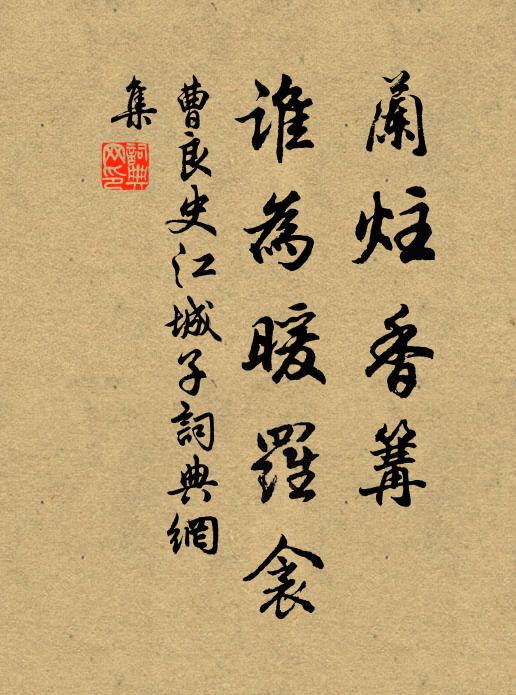 蘭炷香篝
誰為暖羅衾
曹良史江城子詞典網
集
詞典網印